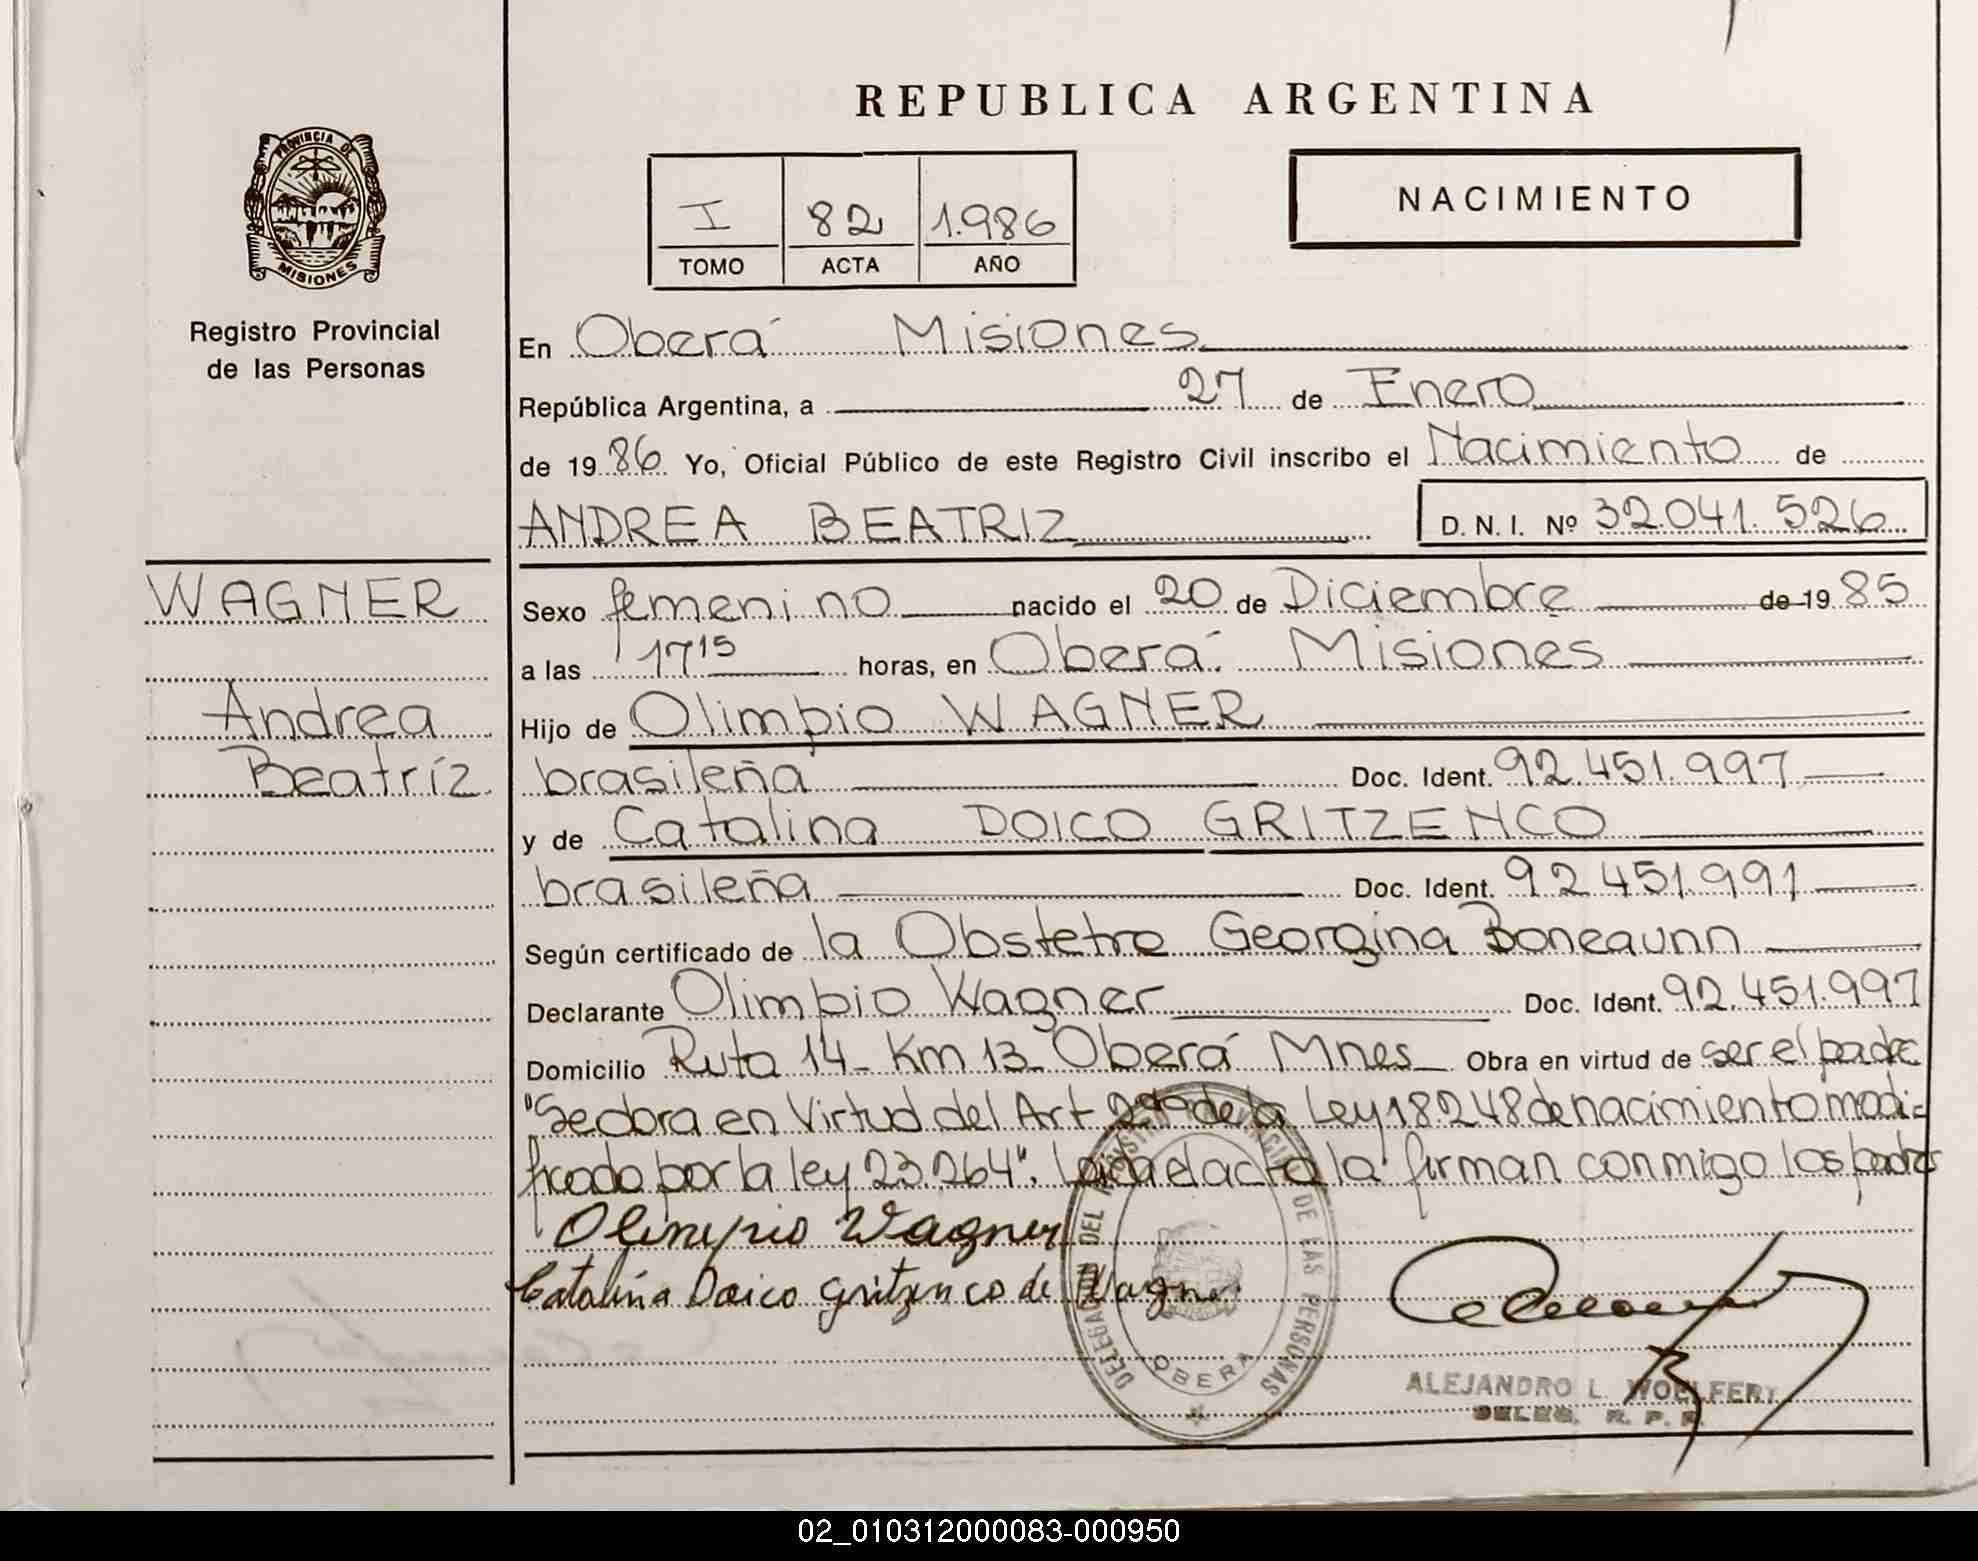 REPUBLICA ARGENTINA
PROVINCIA DE
MISIONES
Registro Provincial
de las Personas
I 82 1.986
TOMO ACTA AÑO
NACIMIENTO
En Oberá Misiones
República Argentina, a 27 de Enero
de 19 86 Yo, Oficial Público de este Registro Civil inscribo el Nacimiento de
ANDREA BEATRIZ D. N. I. Nº 32.041.526
WAGNER
Andrea
Beatríz
Sexo femenino nacido el 20 de Diciembre de 19 85
a las 17 15 horas, en Oberá Misiones
Hijo de Olimpio WAGNER
brasileña Doc. Ident. 92.451.997
y de Catalina DOICO GRITZENCO
brasileña Doc. Ident. 92.451.991
Según certificado de la Obstetra Georgina Boneaunn
Declarante Olimpio Wagner Doc. Ident. 92.451.997
Domicilio Ruta 14 - Km 13 - Oberá Mnes Obra en virtud de ser el padre
"Se obra en Virtud del Art 2do de la Ley 18248 de nacimiento modi=
ficado por la ley 23.264". Leida el acta la firman conmigo los padres
Olimpio Wagner
Catalina Doico Gritzenco de Wagner
DELEGACION DEL REGISTRO PROVINCIAL DE LAS PERSONAS
OBERA
ALEJANDRO L. WOELFERT
DELEG. R. P. P.
02_010312000083-000950